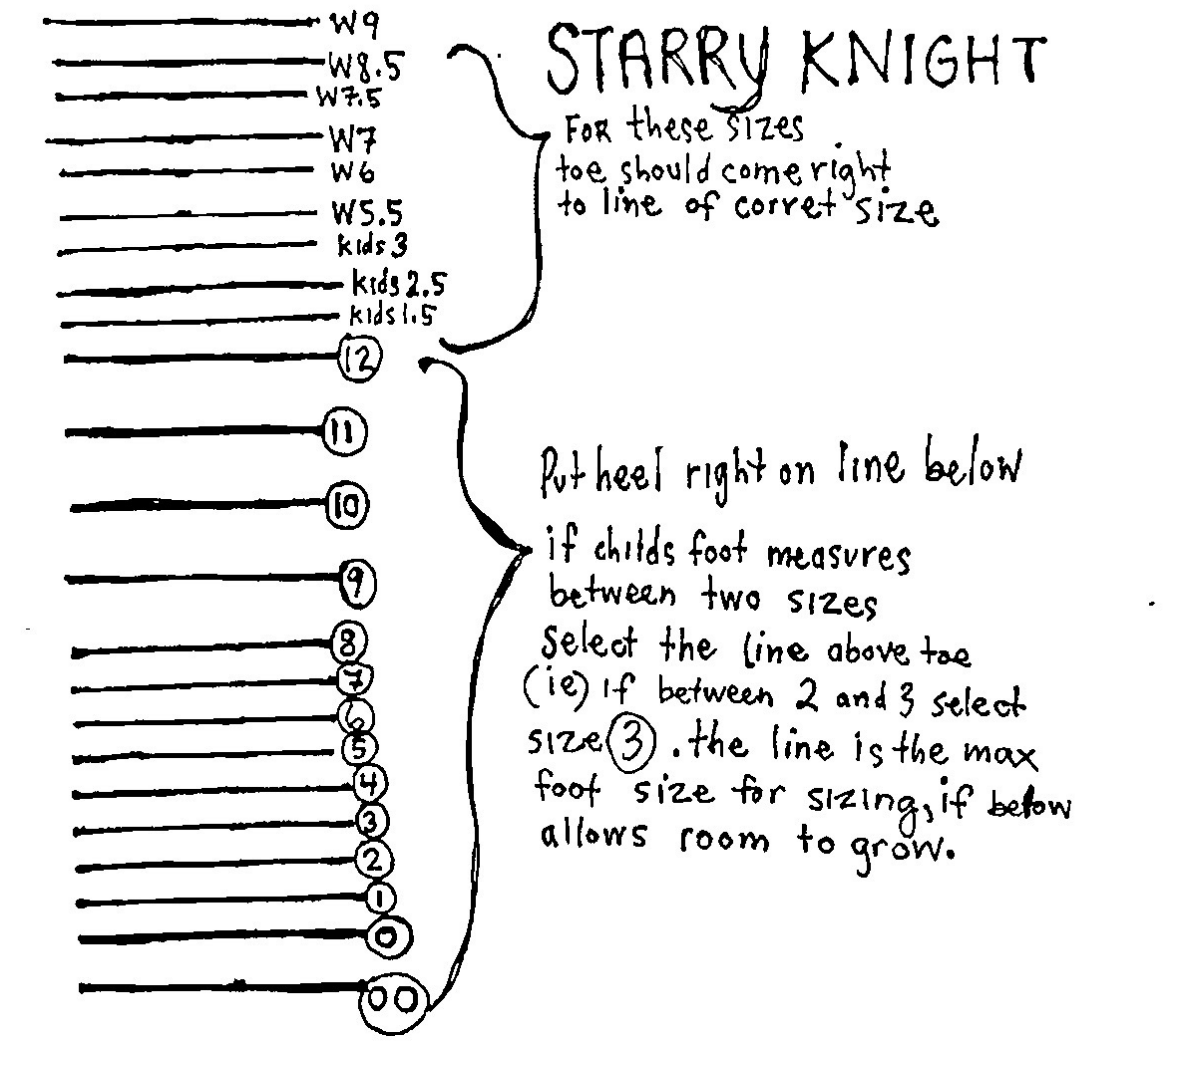 W9
W8.5
W7.5
W7
W6
W5.5
kids 3
kids 2.5
kids 1.5
12
11
10
9
8
7
6
5
4
3
2
1
0
00
STARRY KNIGHT
FOR these sizes
toe should come right
to line of corret size
Put heel right on line below
if childs foot measures
between two sizes
Select the line above toe
(ie) If between 2 and 3 select
size 3 . the line is the max
foot size for sizing, if below
allows room to grow.